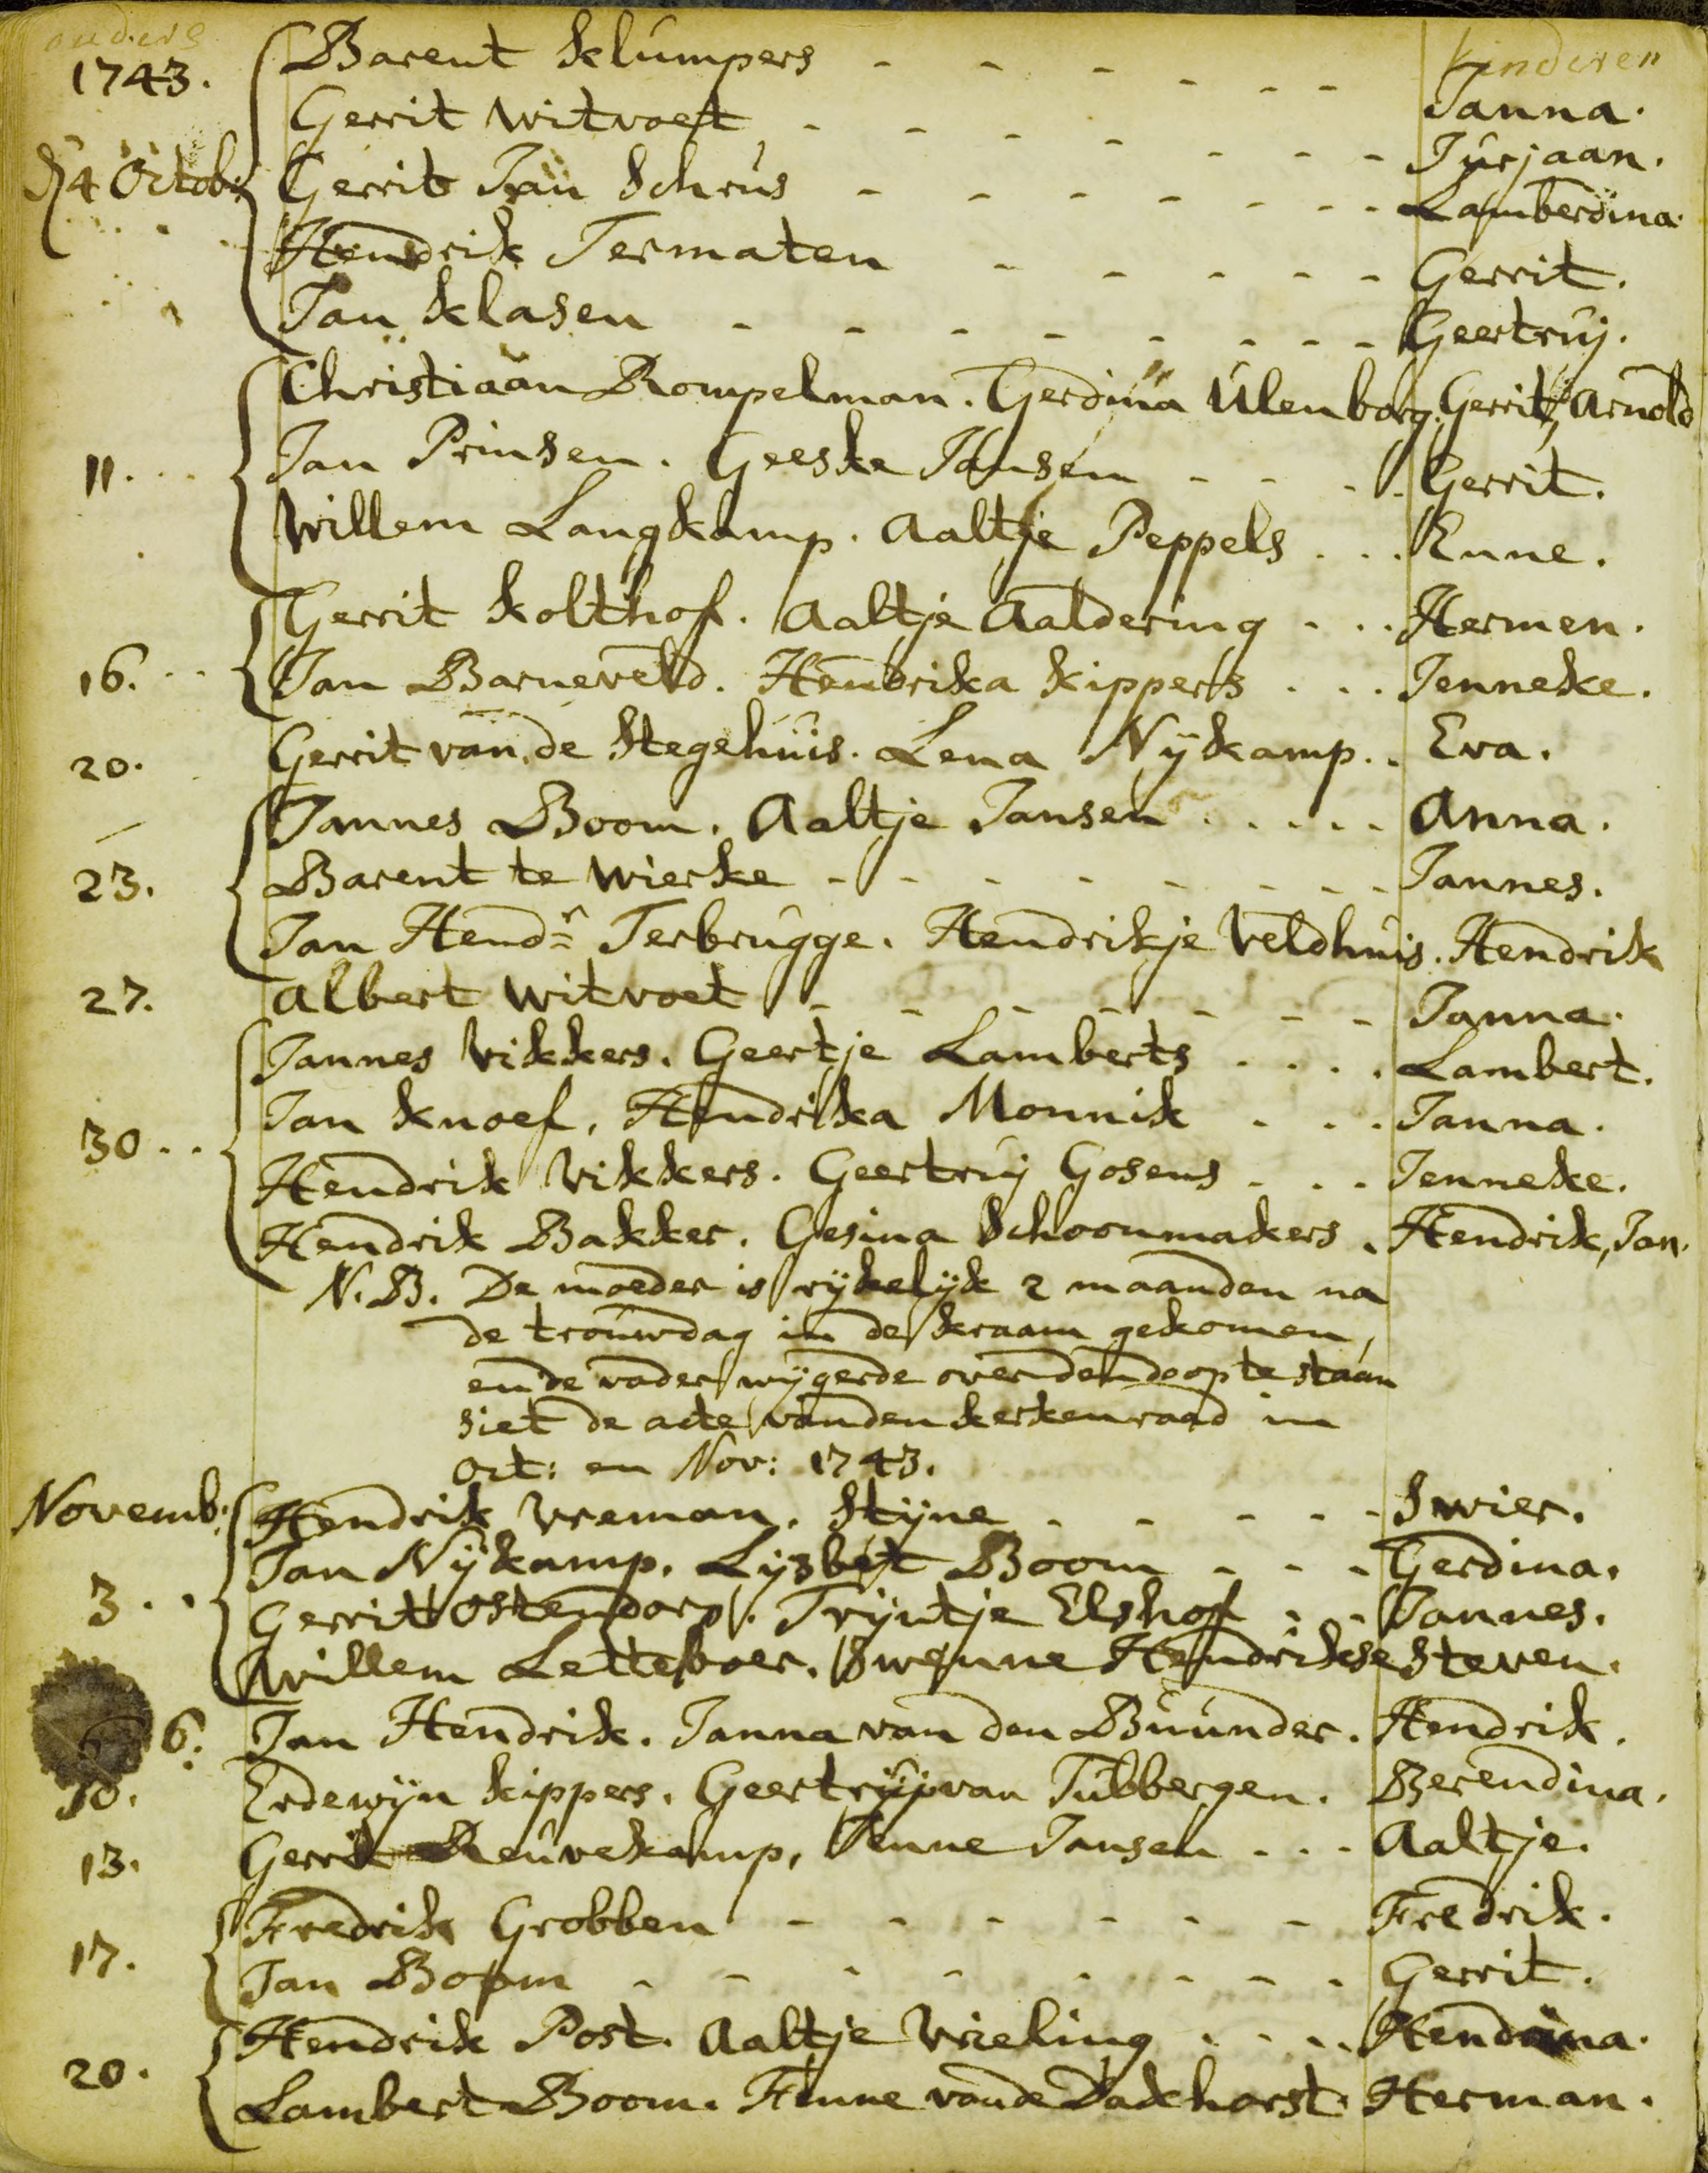 ouders kinderen
1743. Barent Klumpers - - - - - - Janna.
Gerrit Witvoet - - - - - - - Jurjaan.
4 Octob: Gerrit Jan Schrús - - - - - - - Lamberdina.
Hendrik Termaten - - - - - Gerrit.
Jan Klasen - - - - - - - - Geertruij.
Christiaan Rompelman. Gerdina Ulenborg. Gerrit, Arnold
11. . . Jan Prinsen. Geeske Jansen - - - . Gerrit.
Willem Langkamp. Aaltje Peppels . . . Enne.
Gerrit Kolthof. Aaltje Aaldering . . . Hermen.
16. . . Jan Barneveld. Hendrika Kippers . . . Jenneke.
20. Gerrit van de Stegehuis. Lena Nijkamp. . Eva.
Jannes Boom. Aaltje Jansen . . . . . Anna.
23. Barent te Wierke - - - - - - - - Jannes.
Jan Hendr Terbrugge. Hendrikje Veldhuis. Hendrik
27. Albert Witvoet - - - - - - - Janna.
Jannes Vikkers. Geertje Lamberts . . . . Lambert.
Jan Knoef, Hendrika Monnik . . . Janna.
30 . . Hendrik Vikkers. Geertruij Gosens . . . Jenneke.
Hendrik Bakker. Gesina Schoonmakers . Hendrik, Jan.
N.B. De moeder is rijkelijk 2 maanden na
de trouwdag in de kraam gekomen,
en de vader wijgerde over den doop te staan
siet de acte van den kerkenraad in
Oct: en Nov: 1743.
Novemb: Hendrik Vreman. Stijne - - - - - Swier.
Jan Nijkamp. Lijsbet Boom - - - Gerdina.
3 . . Gerrit Ostendorp. Trijntje Elshof - - Jannes.
Willem Letteboer. Swenne Hendrikse Steven.
6. Jan Hendrik. Janna van den Buunder. Hendrik.
10. Erdewijn Kippers. Geertruij van Tubbergen. Berendina.
13. Gerrit Reuvekamp, Jenne Jansen . . . Aaltje.
Fredrik Grobben - - - - - - Fredrik.
17. Jan Boom - - - - - - - - Gerrit.
Hendrik Post. Aaltje Vrieling . . . . Hendrina.
20. Lambert Boom. Fenne van de Dakhorst. Herman.